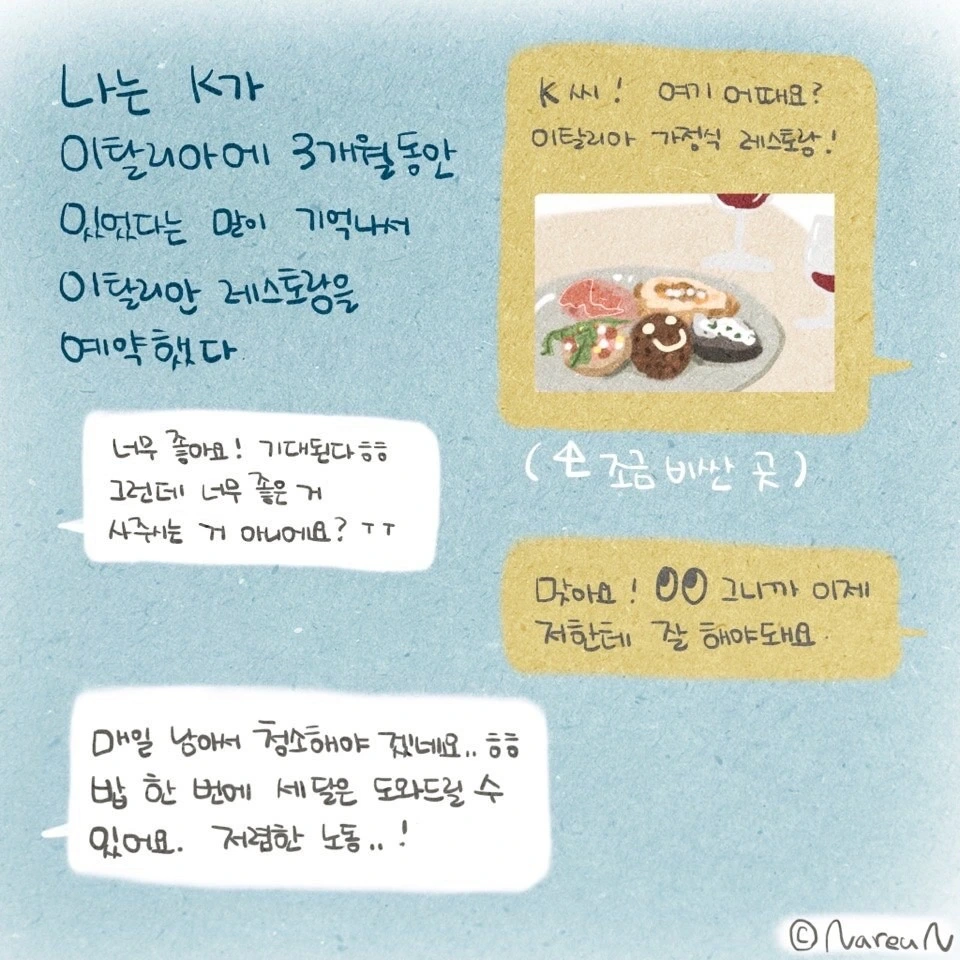 나는 K가
이탈리아에 3개월동안
있었다는 말이 기억나서
이탈리안 레스토랑을
예약했다
K씨! 여기 어때요?
이탈리아 가정식 레스토랑!
(⇧ 조금 비싼 곳)
너무 좋아요! 기대된다ㅎㅎ
그런데 너무 좋은 거
사주시는 거 아니에요? ㅜㅜ
맞아요! 👀 그니까 이제
저한테 잘 해야돼요.
매일 남아서 청소해야 겠네요..ㅎㅎ
밥 한 번에 세 달은 도와드릴 수
있어요. 저렴한 노동..!
©NareuN